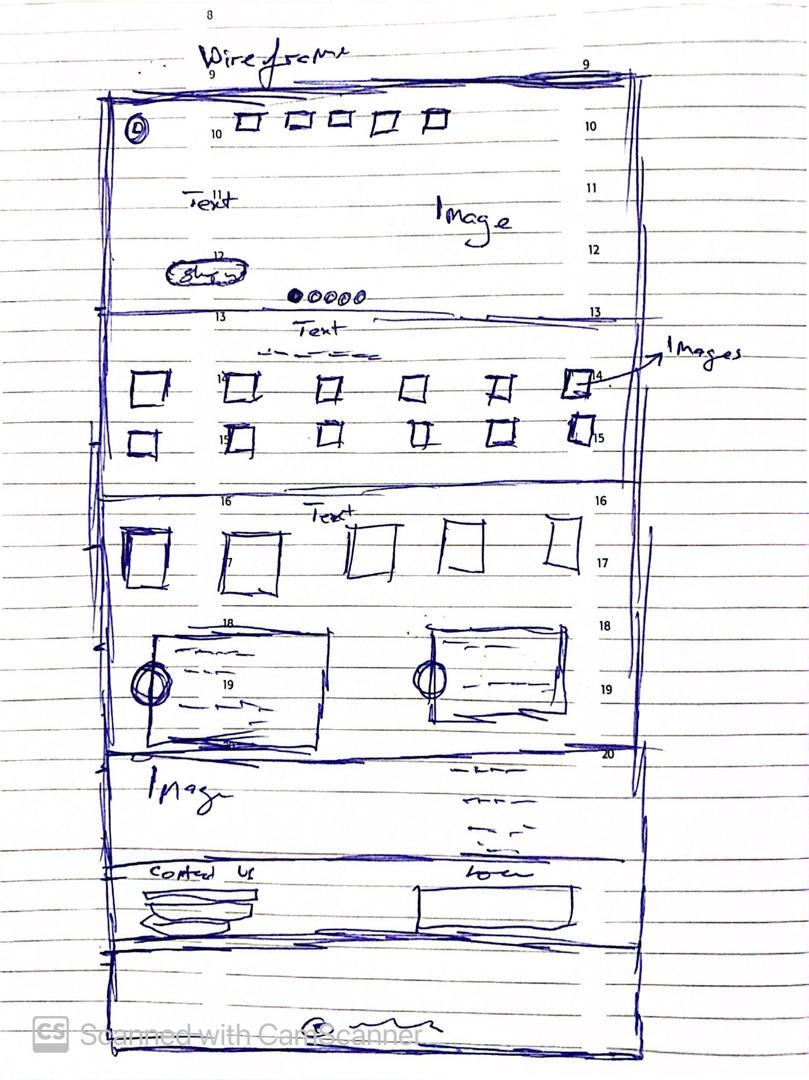 8
Wireframe
9 9
D
10 10
11 11
Text Image
12 12
13 13
Text
Images
14 14
15 15
16 16
Text
7 17
18 18
19 19
20
Image
Contact Us
CS Scanned with CamScanner